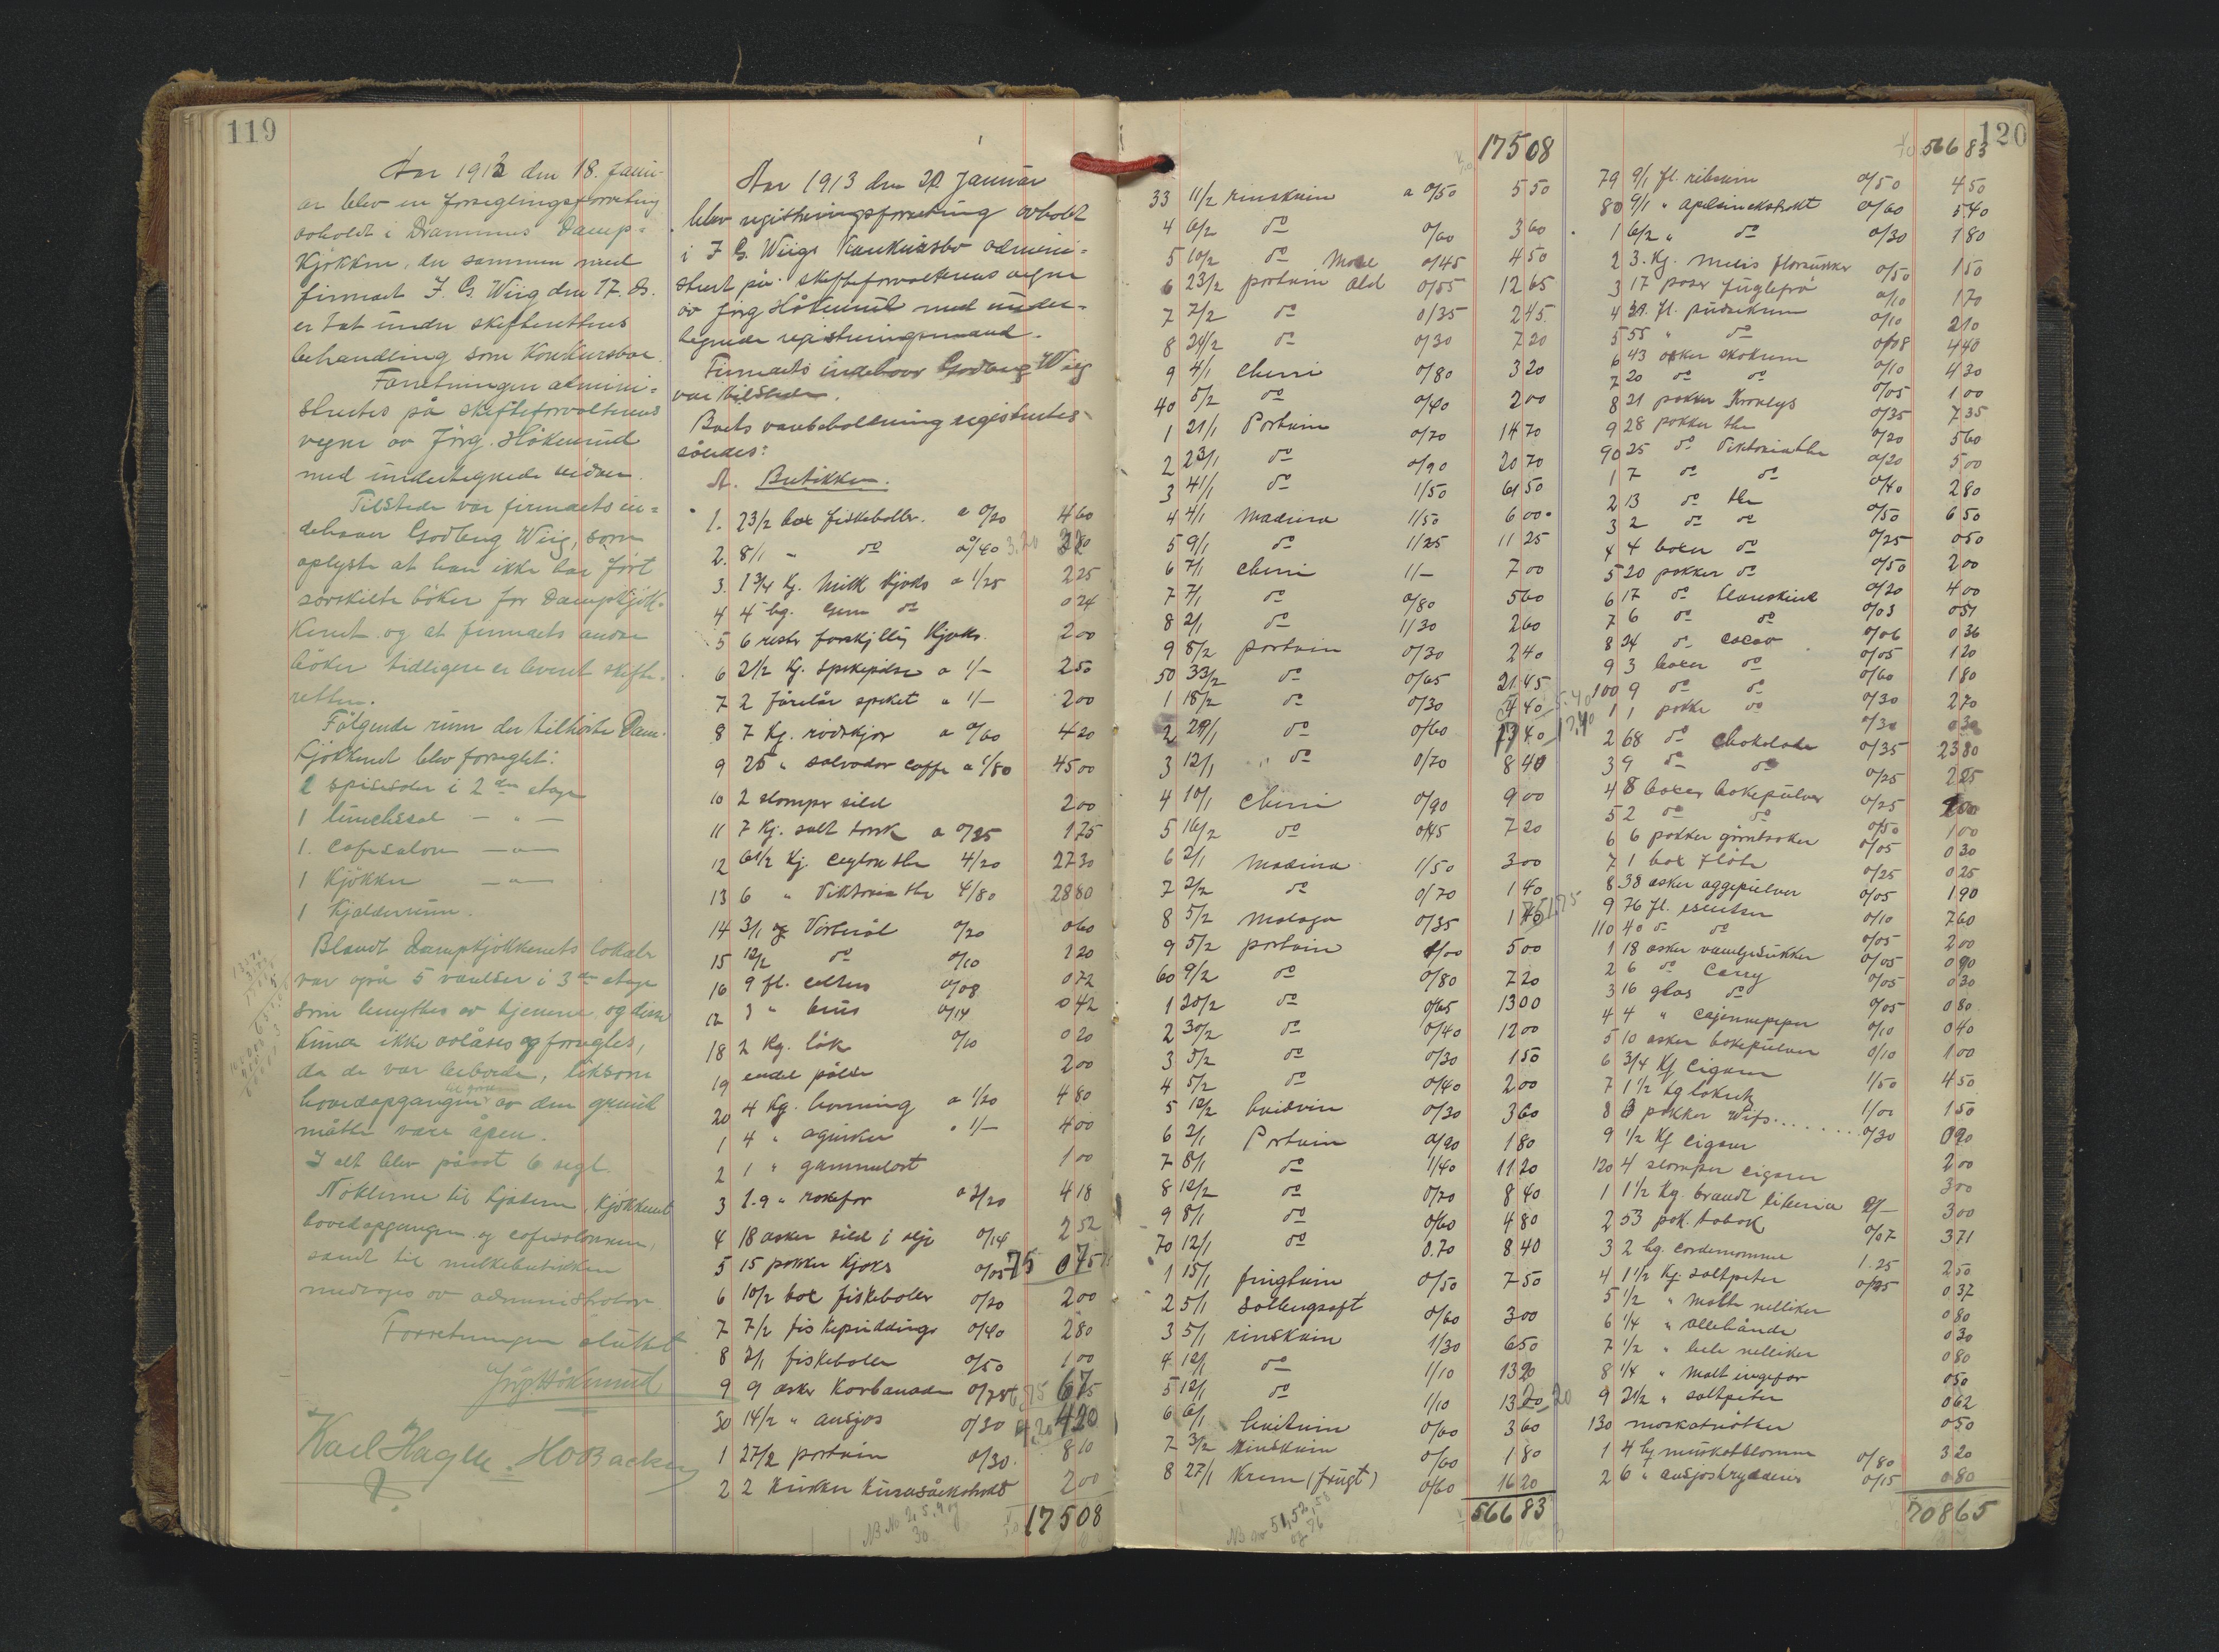 119
Aar 1913 den 18. Janu-
ar blev en forseglingsforretning
avholdt i Drammens Damp-
kjøkken, der sammen med
firmaet J. G. Wiig den 17. ds.
er tat under skifterettens
behandling som konkursbo.
Forretningen admini-
strertes på skifteforvalterens
vegne av Jørg. Håkenrud
med undertegnede vidner.
Tilstede var firmaets in-
dehaver Godteng Wiig, som
oplyste at han ikke har ført
særskilte bøker for Dampkjøk-
kenet og at firmaets andre
bøker tidligere er levert skifte-
retten.
Følgende rum der tilhørte Dam.
kjøkkenet blev forseglet:
2 spisesaler i 2den etage
1 lunchsal — " —
1. cafesalon — " —
1 Kjøkken — " —
1 Kjælderrum.
Blandt Dampkjøkkenets lokaler
var også 5 værelser i 3die etage
som benyttes av tjenerne og disse
kunde ikke avlåses og forsegles,
da de var beboede, liksom
hovedopgangen av den grund
måtte være åpen.
I alt blev påsat 6 segl.
Nøklerne til kjælderen, Kjøkkenet
hovedopgangen og cafesalonen,
samt til melkebutikken
medtoges av administrator.
Forretningen sluttet
Jørg Håkenrud
Karl Hagle. HOBacken
Aar 1913 den 20. Januar
blev registreringsforretning avholdt
i J. G. Wiigs Konkursbo admini-
strert på skifteforvalterens vegne
av Jørg Håkenrud med under-
tegnede registreringsmænd.
Firmaets indehaver Godteng Wiig
var tilstede.
Boets varebeholdning registrertes
således:
A. Butikken.
1. 23/2 box fiskeboller. a 0/20 460
2. 8/1 " do a 0/40 3.20 320
3. 1 3/4 Kg. Milk Kjæks a 1/25 225
4 4 hg. Gem do 024
5 6 rester forskjellig Kjæks. 200
6 2 1/2 Kg. Spekepølse a 1/- 250
7 2 fårelår speket a 1/- 200
8 7 Kg. rødskjær a 0/60 420
9 25 " salvador caffe a 1/80 4500
10 2 slumper sild 200
11 7 Kg. salt torsk a 0/25 175
12 6 1/2 Kg Ceylon the 4/20 2730
13 6 " Viktoria the 4/80 2880
14 3/1 fl Vørterøl 0/20 060
15 12/2 do 0/10 120
16 9 fl. selters 0/08 072
17 3 " brus 0/14 042
18 2 Kg. løk 0/10 020
19 endel pølser 200
20 4 Kg. honning a 1/20 480
1 4 " agurker " 1/- 400
2 1 " gammelost 100
3 1.9 " rokefor a 2/20 418
4 18 æsker sild i olje 0/14 252
5 15 pakker Kjæks 0/05 75 075
6 10/2 box fiskeboller 0/20 200
7 7/2 fiskepuddinger 0/40 280
8 2/1 fiskeboller 0/50 100
9 9 æsker Karbonader 0/75 675
30 14/2 " ansjos 0/30 4.20 420
1 27/2 portvin 0/30 810
2 2 Krukker Kirsebærekstrakt 200
NB No 2, 5, 9 og
30
17508
17508
33 11/2 rinskvin a 0/50 550
4 6/2 do 0/60 360
5 10/2 do Mosel 0/45 450
6 23/2 portvin old 0/55 1265
7 7/2 do 0/35 245
8 24/2 do 0/30 720
9 4/1 Cherri 0/80 320
40 5/2 do 0/40 200
1 21/1 Portvin 0/70 1470
2 23/1 do 0/90 2070
3 41/1 do 1/50 6150
4 4/1 Madeira 1/50 600
5 9/1 do 1/25 1125
6 7/1 Cherri 1/- 700
7 7/1 do 0/80 560
8 2/1 do 1/30 260
9 8/2 portvin 0/30 240
50 33/2 do 0/65 2145
1 18/2 do 0/30 540
2 29/1 do 0/60 1740 17,40
3 12/1 " do 0/70 840
4 10/1 Cherri 0/90 900
5 16/2 do 0/45 720
6 2/1 Madeira 1/50 300
7 2/2 do 0/70 140
8 5/2 Malaga 0/35 175
9 5/2 portvin 1/00 500
60 9/2 do 0/80 720
1 20/2 do 0/65 1300
2 30/2 do 0/40 1200
3 5/2 do 0/30 150
4 5/2 do 0/40 200
5 12/2 hvidvin 0/30 360
6 2/1 Portvin 0/90 180
7 8/1 do 1/40 1120
8 12/2 do 0/70 840
9 8/1 do 0/60 480
70 12/1 do 0.70 840
1 15/1 frugtvin 0/50 750
2 5/1 Solbærsaft 0/60 300
3 5/1 rinskvin 1/30 650
4 12/1 do 1/10 1320
5 12/1 do 1/10 1320
6 6/1 hvitvin 0/60 360
7 3/2 Rinskvin 0/60 180
8 27/1 Krem (frugt) 0/60 1620
NB no 51, 52, 58
og 76
56683
120
56683
79 9/1 fl. ribsvin 0/50 450
80 9/1 " Aplsinekstrakt 0/60 540
1 6/2 " do 0/30 180
2 3. Kg. Melis florsukker 0/50 150
3 17 poser fuglefrø 0/10 170
4 21 fl. pudsekrem 0/10 210
5 55 " do 0/08 440
6 43 æsker skokrem 0/10 430
7 20 do do 0/05 100
8 21 pakker Kronlys 0/35 735
9 28 pakker the 0/20 560
90 25 do Viktoriathe 0/20 500
1 7 do do 0/40 280
2 13 do the 0/50 650
3 2 do do 0/25 050
4 4 boxer do 0/50 200
5 20 pakker do 0/20 400
6 17 do blanskink 0/03 051
7 6 do do 0/06 036
8 24 do cacao 0/05 120
9 3 boxer do 0/60 180
100 9 do do 0/30 270
1 1 pakke do 0/30 030
2 68 do Chokolade 0/35 2380
3 9 do do 0/25 225
4 8 boxer bakepulver 0/25 200
5 2 do do 0/50 100
6 6 pakker grøntsaker 0/05 030
7 1 box fløte 0/25 025
8 38 æsker eggepulver 0/05 190
9 76 fl. esentser 0/10 760
110 40 do do 0/05 200
1 18 æsker vaniljesukker 0/05 090
2 6 do Carry 0/05 030
3 16 glas do 0/05 080
4 4 " Cajennepeper 0/10 040
5 10 æsker bakepulver 0/10 100
6 3/4 Kg Cigarer 450
7 1 1/2 Kg lakrits 1/00 150
8 3 pakker Wips 0/30 090
9 1/2 Kg Cigarer 200
120 4 slumper cigarer 300
1 1 1/2 Kg. brændt liberia 2/- 300
2 53 pak. tobak 0/07 371
3 2 hg. cardemomme 1.25 250
4 1 1/2 Kg. Saltpeter 0/25 037
5 1/2 " Malte nelliker 080
6 1/4 " Allehånde 030
7 1/2 " hele nelliker 080
8 1/4 " Malt ingefær 050
9 2 1/2 " saltpeter 062
130 muskatnøtter 050
1 4 hg muskatblomme 0/80 320
2 6 " ansjoskrydderi 0/15 080
70865